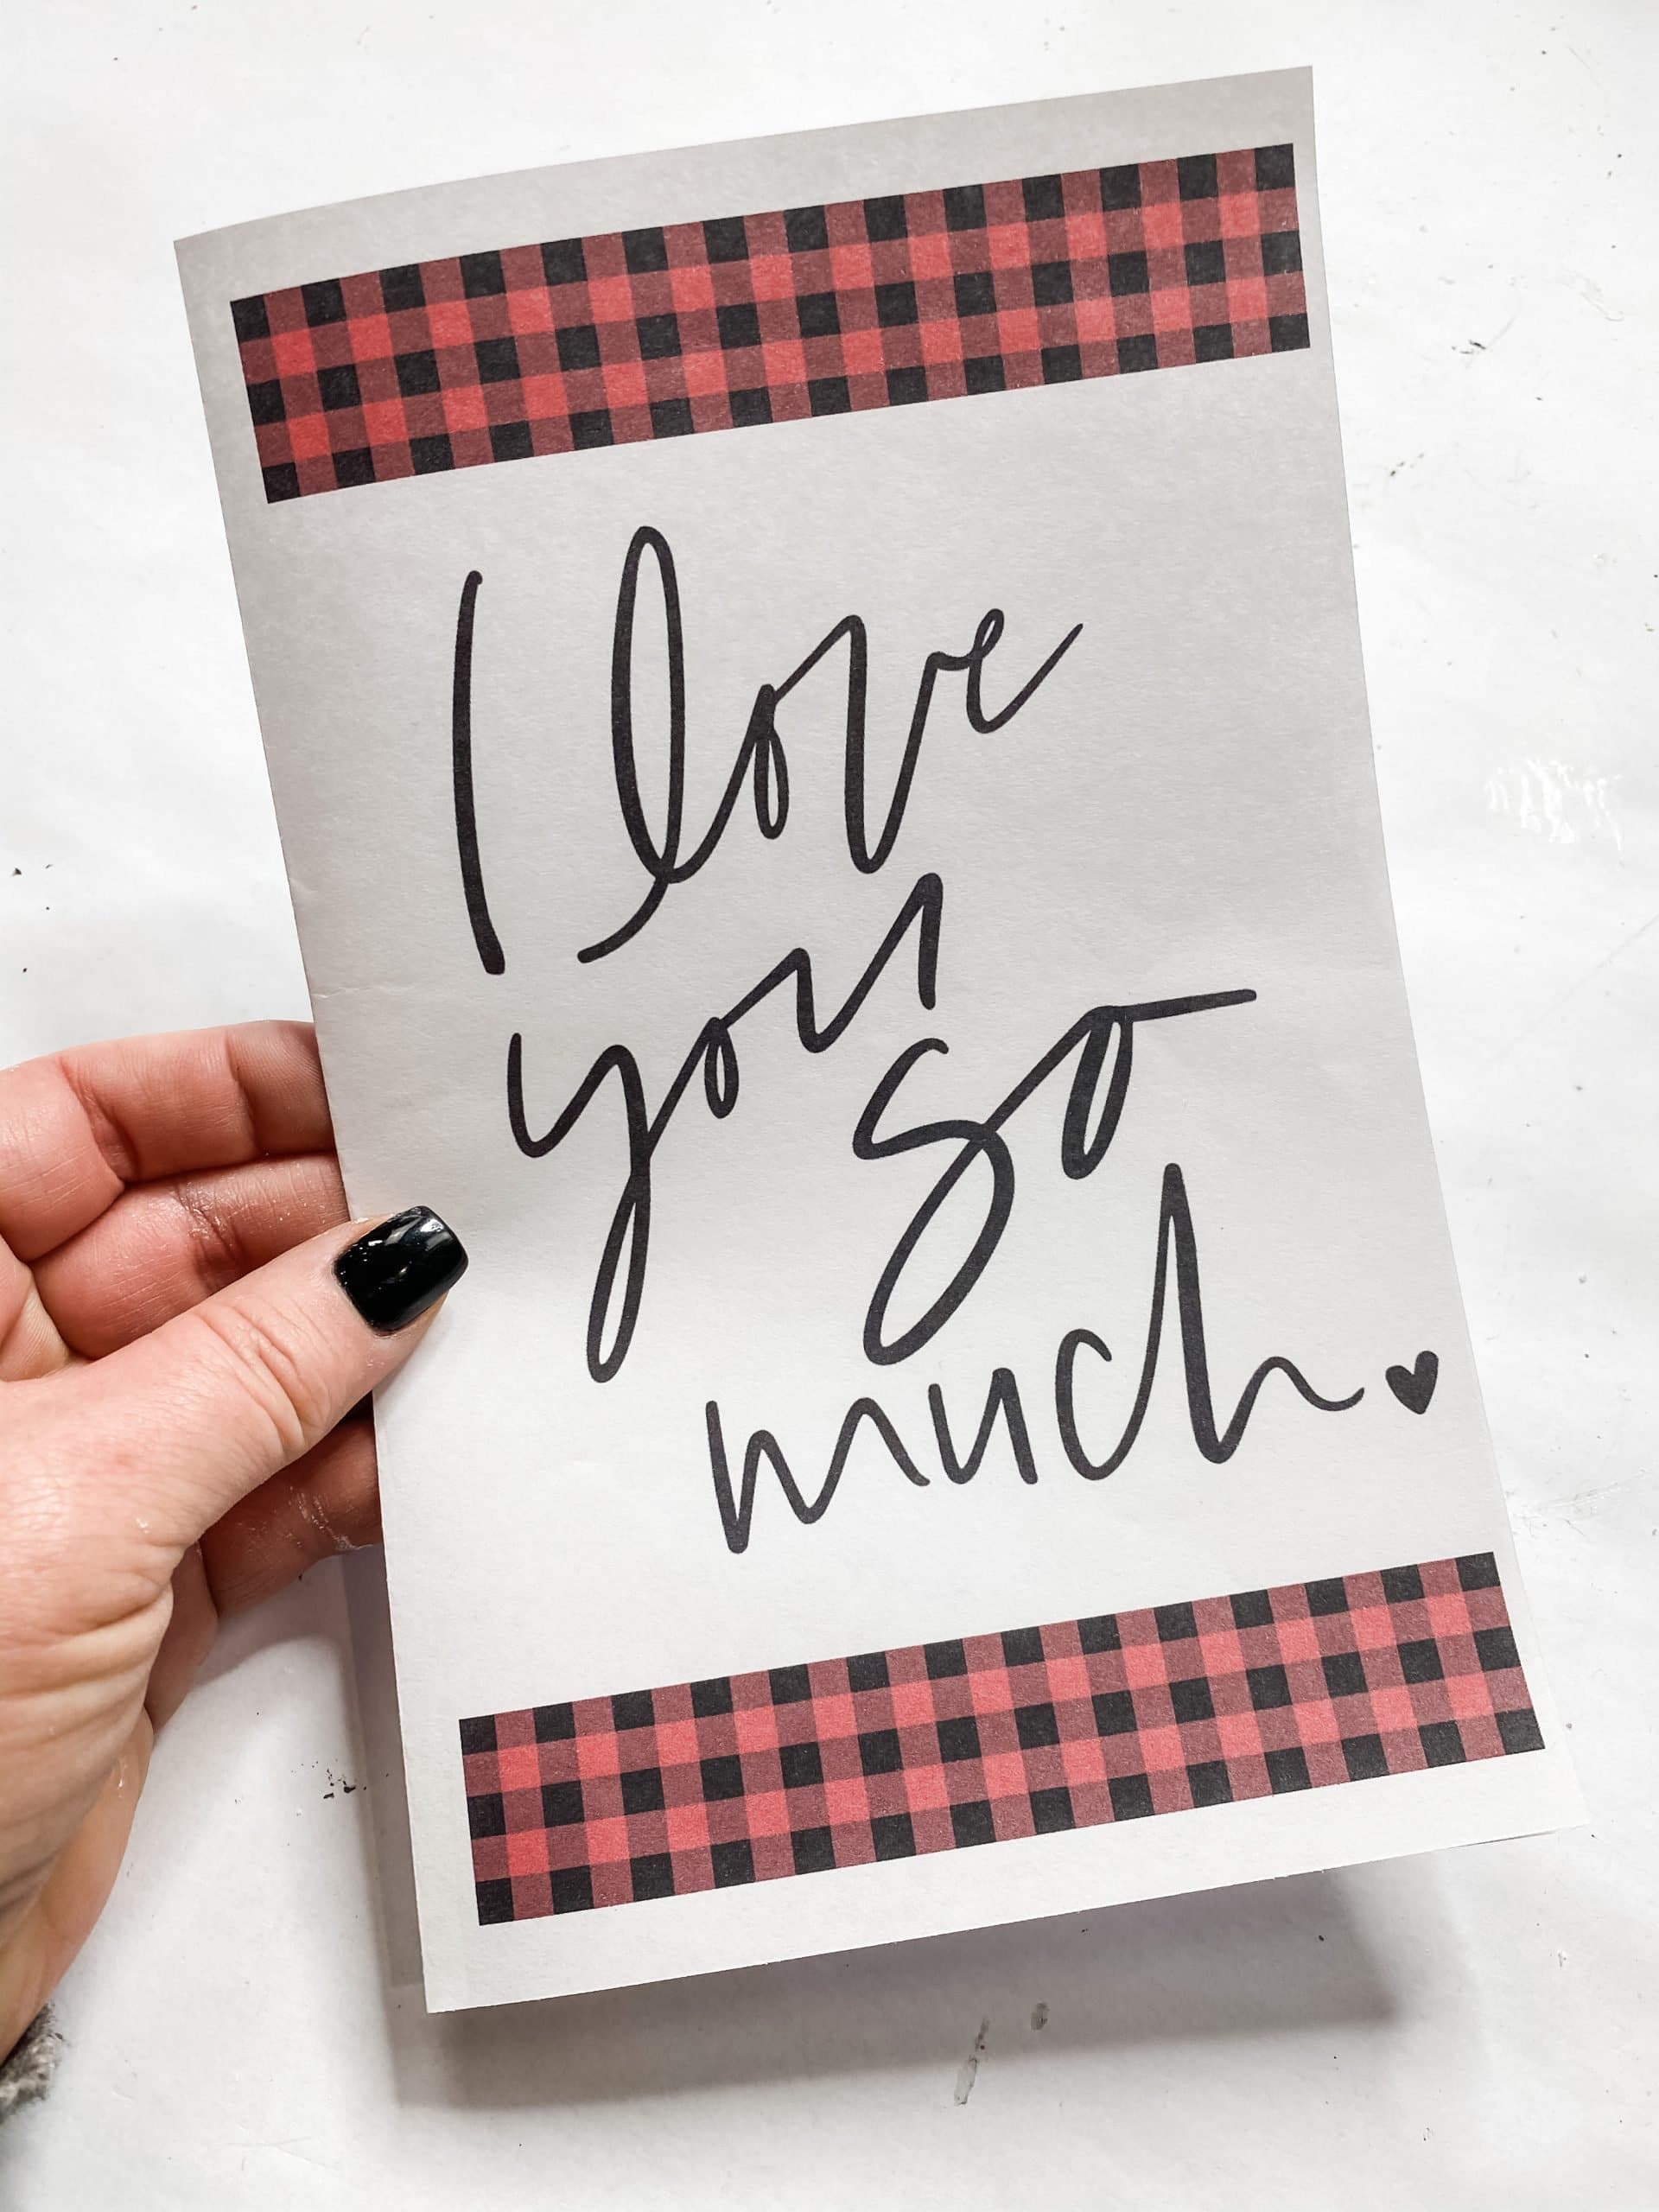 I love
you
so
much.